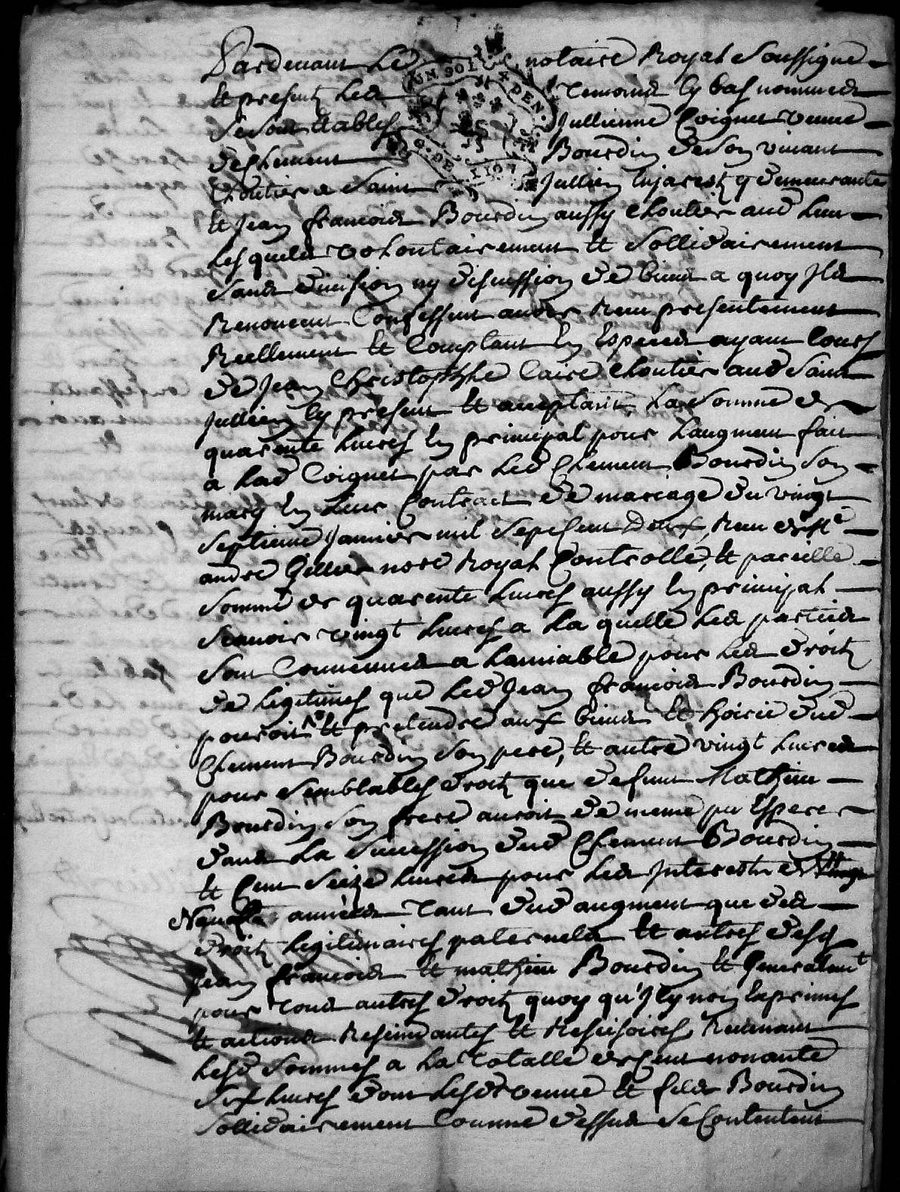 Pardevant Le notaire Royal Soussigné
Et presentz Les Temoins Cy bas nommes
Se Sont Etablis Jullienne Coignet veuve
UN SOL 4 DEN.
G. DE
de Clement Bourdin de Son vivant
Cloutier a Saint Jullien En Jarestz demeurante
Et Jean francois Bourdin aussy Cloutier aud Lieu
Lesquels volontairement Et Sollidairement
Sans division ny discussion de biens a quoy Ils
Renoncent Confessent avoir Receu presentement
Reellement Et Comptant En Especes ayant Cours
de Jean Christophle Caire Cloutier aud Saint
Jullien Cy present Et acceptant La Somme de
quarente Livres En principal pour L'augment fait
a Lad Coignet par Led Clement Bourdin Son
mary En Leur Contract de mariage du vingt
Septieme Janvier mil Sept Cent Receu de Me
andre Gillier nore Royal Controllé, Et pareille
Somme de quarente Livres aussy En principal
Scavoir vingt Livres a La quelle Les parties
Sont Convenues a L'amiable pour Les droitz
de Legitimes que Led Jean francois Bourdin
pouvoit Et pretendre aux biens Et hoirie dud
Clement Bourdin Son pere, Et autre vingt Livres
pour Semblables droitz que deffunt Mathieu
Bourdin Son frere avoit de meme Especes
dans La Succession dud Clement Bourdin
Et Cent Seize Livres pour Les Interestz de
annees Tant dud augment que des
droitz Legitimaires paternels Et autres desd
Jean francois Et mathieu Bourdin Et Generalemt
pour Tous autres droitz quoy qu'Icy non Exprimes
Et actions Rescindantes Et Rescisoires Revenant
Lesd Sommes a La Totalle de Cent nonante
Six Livres dont Lesd veuve Et fils Bourdin
Sollidairement Comme dessus Se Contentent